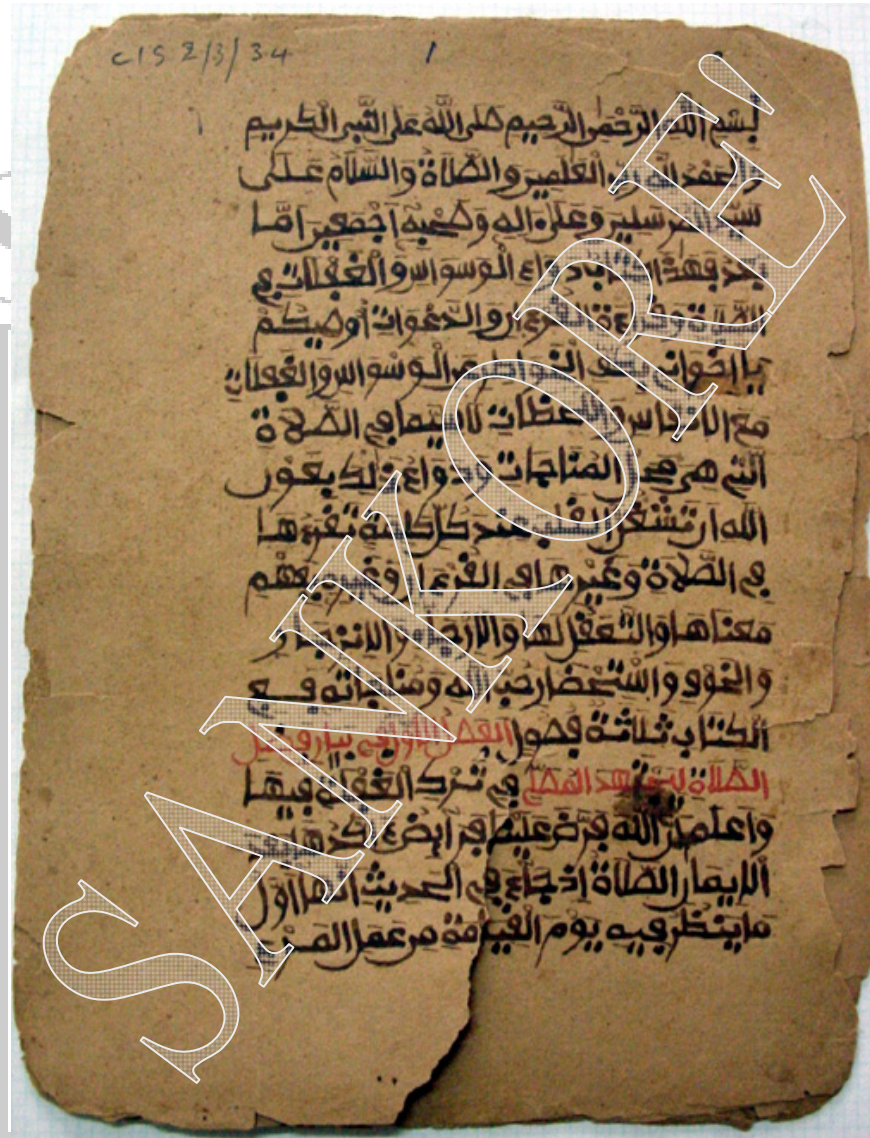 CIS 2/3/34
1
بسم الله الرحمن الرحيم صلى الله على النبي الكريم
والحمد لله رب العلمين والصلاة والسلام على
سيد المرسلين وعلى اله وصحبه اجمعين اما
بعد فهذا كتاب دواء الوسواس والغفلات في
الصلاة وقراءة القرءان والدعوات أوصيكم
يا إخواني بكف الخواطر عن الوسواس والغفلات
مع الانفاس واللحظات لاسيما في الصلاة
التي هي محل المناجات ودواء ذلك بعون
الله ان تشغل القلب عند كل كلمة تقرءها
في الصلاة وغيرها في القرءان وغيره بفهم
معناها والتعقل لها والارجاء والانزجار
والخوف واستحضار حب الله ومناجاته في
الكتاب ثلاثة فصول الفصل الأول في بيان فضل
الصلاة في ترك الغفلة فيها
واعلم ان الله فرض عليك فرايض بعد
الإيمان الصلاة اذ جاء في الحديث انها أول
ما ينظر فيه يوم القيامة من عمل المرء
SANKORE'